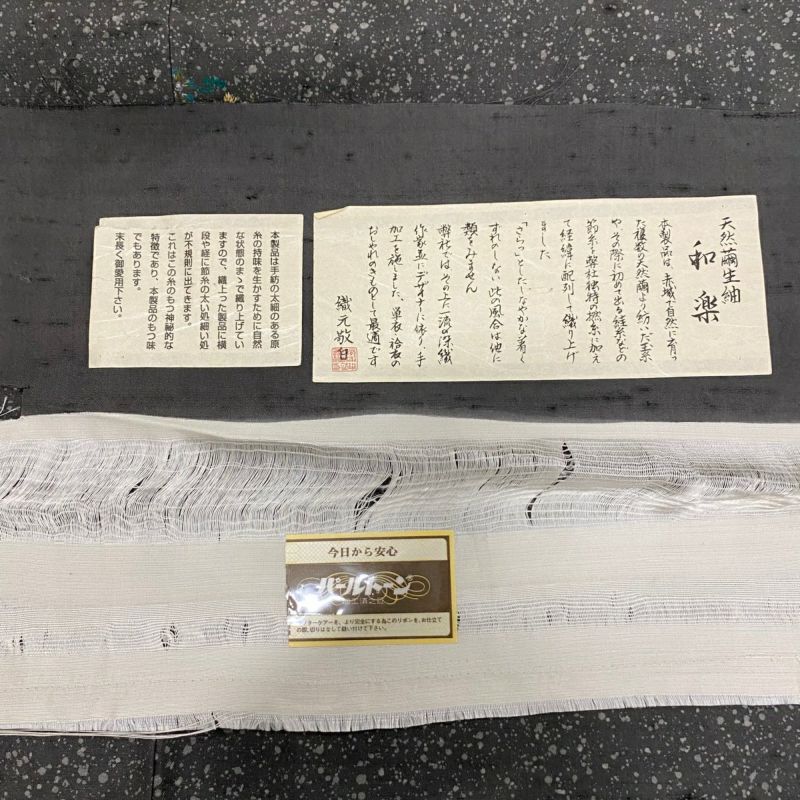 天然繭生紬
和楽
本製品は、赤城で自然に育っ
た複数の天然繭より紡いだ玉糸
や、その際に初めて出る
節糸を弊社独特の撚糸に加え
て経緯に配列して織り上げ
ました
「さらっ」としたしなやかな着く
ずれのしない此の風合は他に
類をみません
弊社ではその上に一流の染織
作家並にデザイナーに依り、手
加工を施しました、単衣袷衣の
おしゃれのきものとして最適です
織元敬白
本製品は手紡の太細のある原
糸の持味を生かすために自然
な状態のまゝで織り上げてい
ますので、織上った製品に横
段や経に節糸の太い処細い処
が不規則に出てきます。
これはこの糸のもつ神秘的な
特徴であり、本製品のもつ味
でもあります。
末長く御愛用下さい。
今日から安心
パールトーン
フターケアーを、より完全にする為このリボンを、お仕立て
の際、切りはなして縫い付けて下さい。